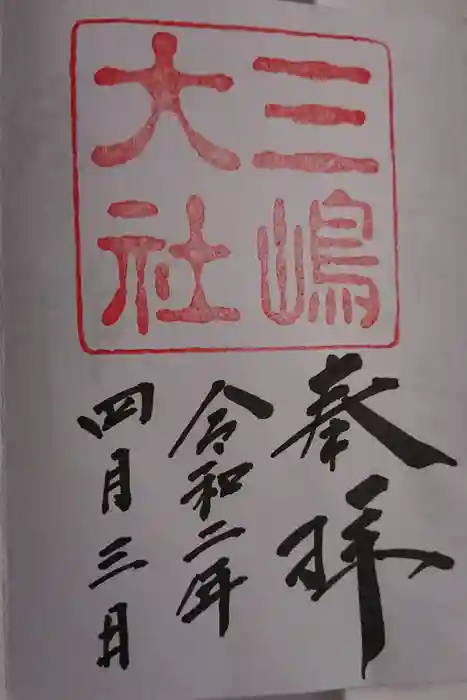 三嶋
大社
奉拝
令和二年
四月三日